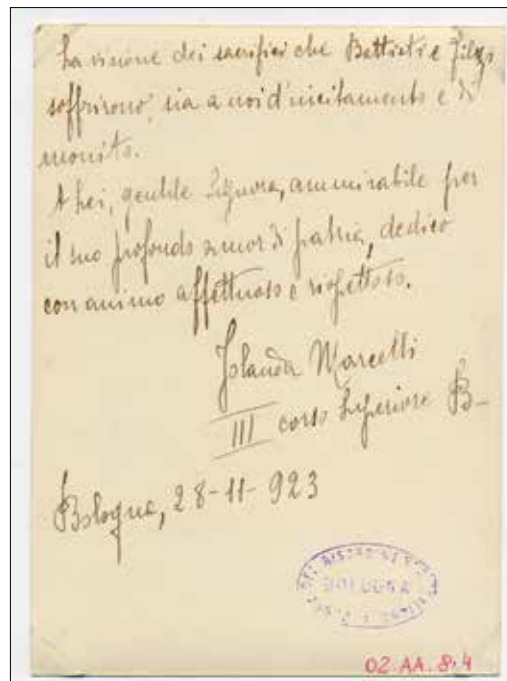 La visione dei sacrifici che Battisti e Filzi
soffrirono, sia a noi d'incitamento e di
monito.
A Lei, gentile Signora, ammirabile per
il suo profondo amor di patria, dedico
con animo affettuoso e rispettoso.
Jolanda Marcelli
III corso Superiore B-
Bologna, 28-11-923
BOLOGNA
02.AA.8.4